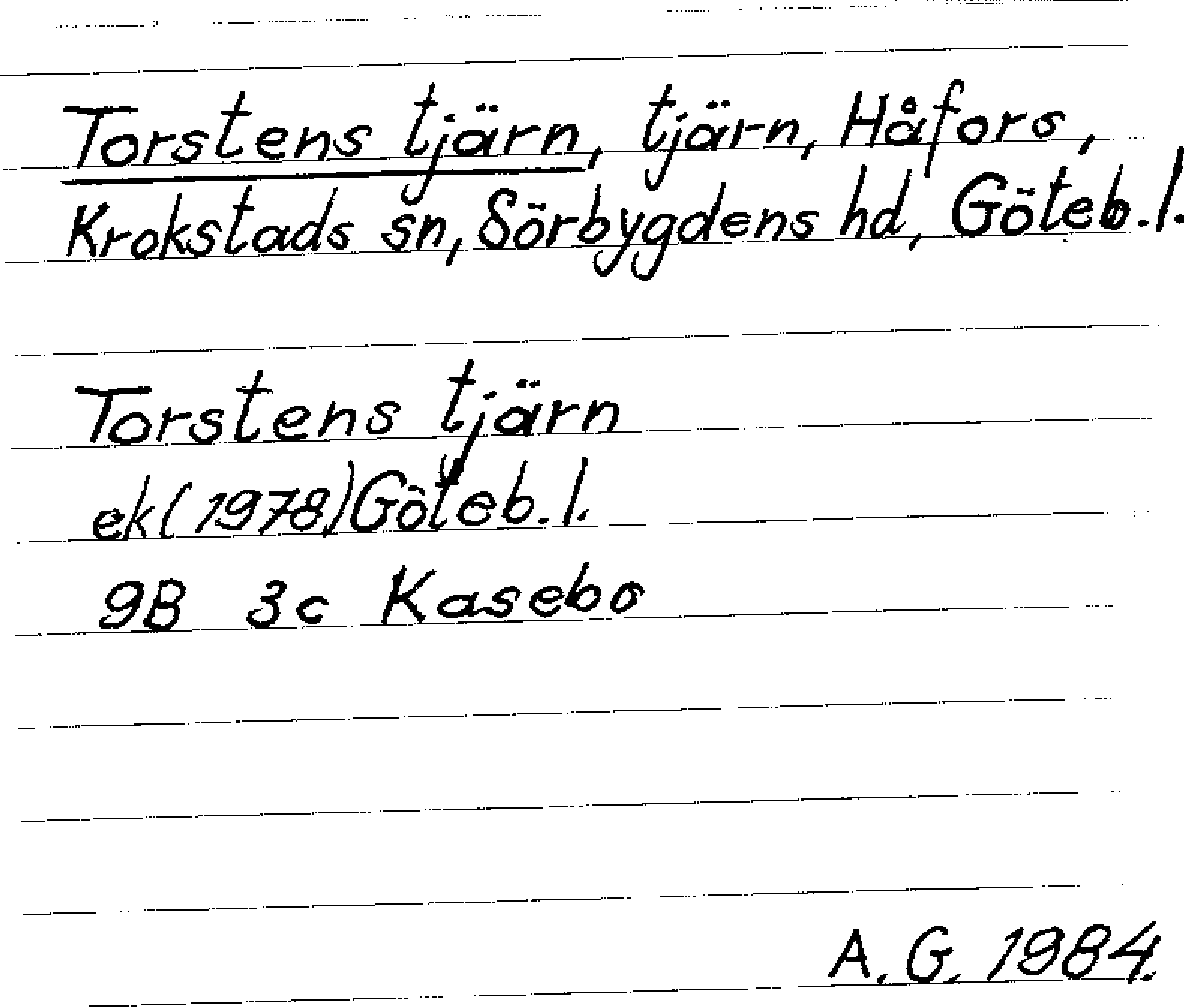 Torstens tjärn, tjärn, Håfors,
Krokstads sn, Sörbygdens hd, Göteb. l.
Torstens tjärn
ek (1978) Göteb. l.
9B 3c Kasebo
A. G. 1984.